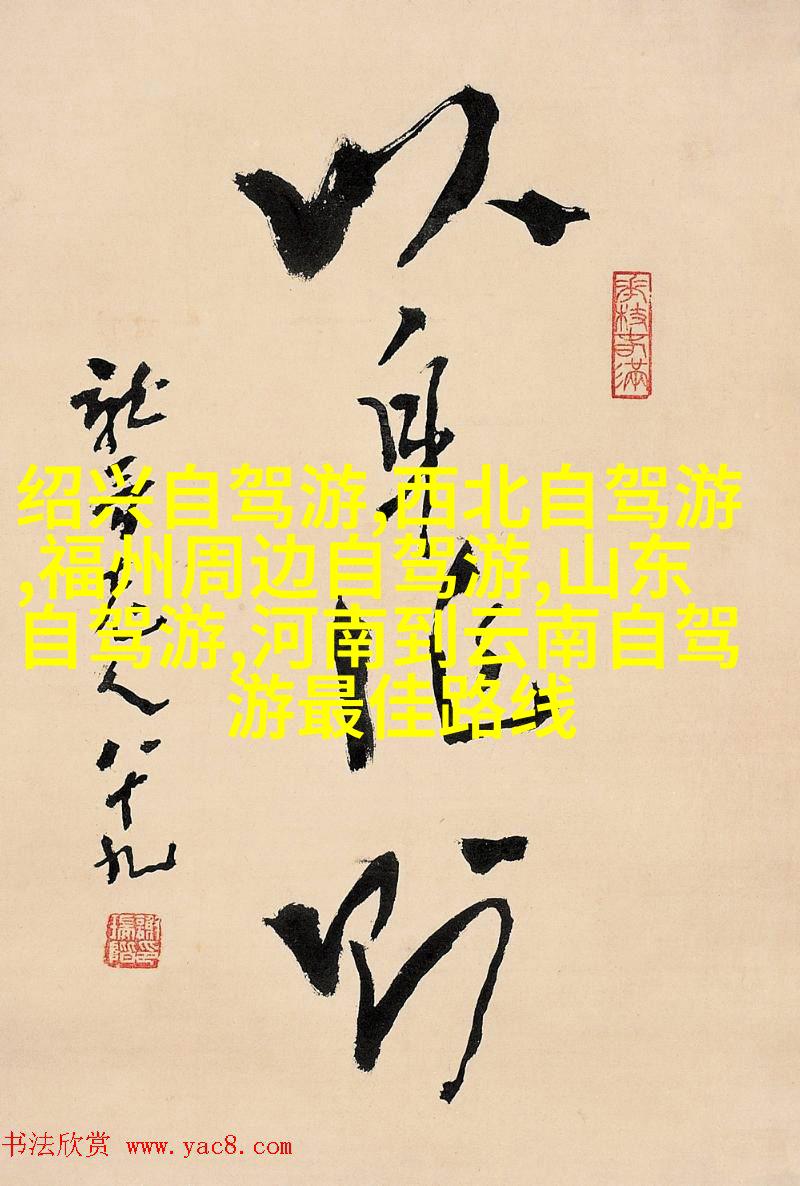 以身作則
人八十九
绍兴自驾游,西北自驾游
,福州周边自驾游,山东
自驾游,河南到云南自驾
游最佳路线
书法欣赏 www.yac8.com